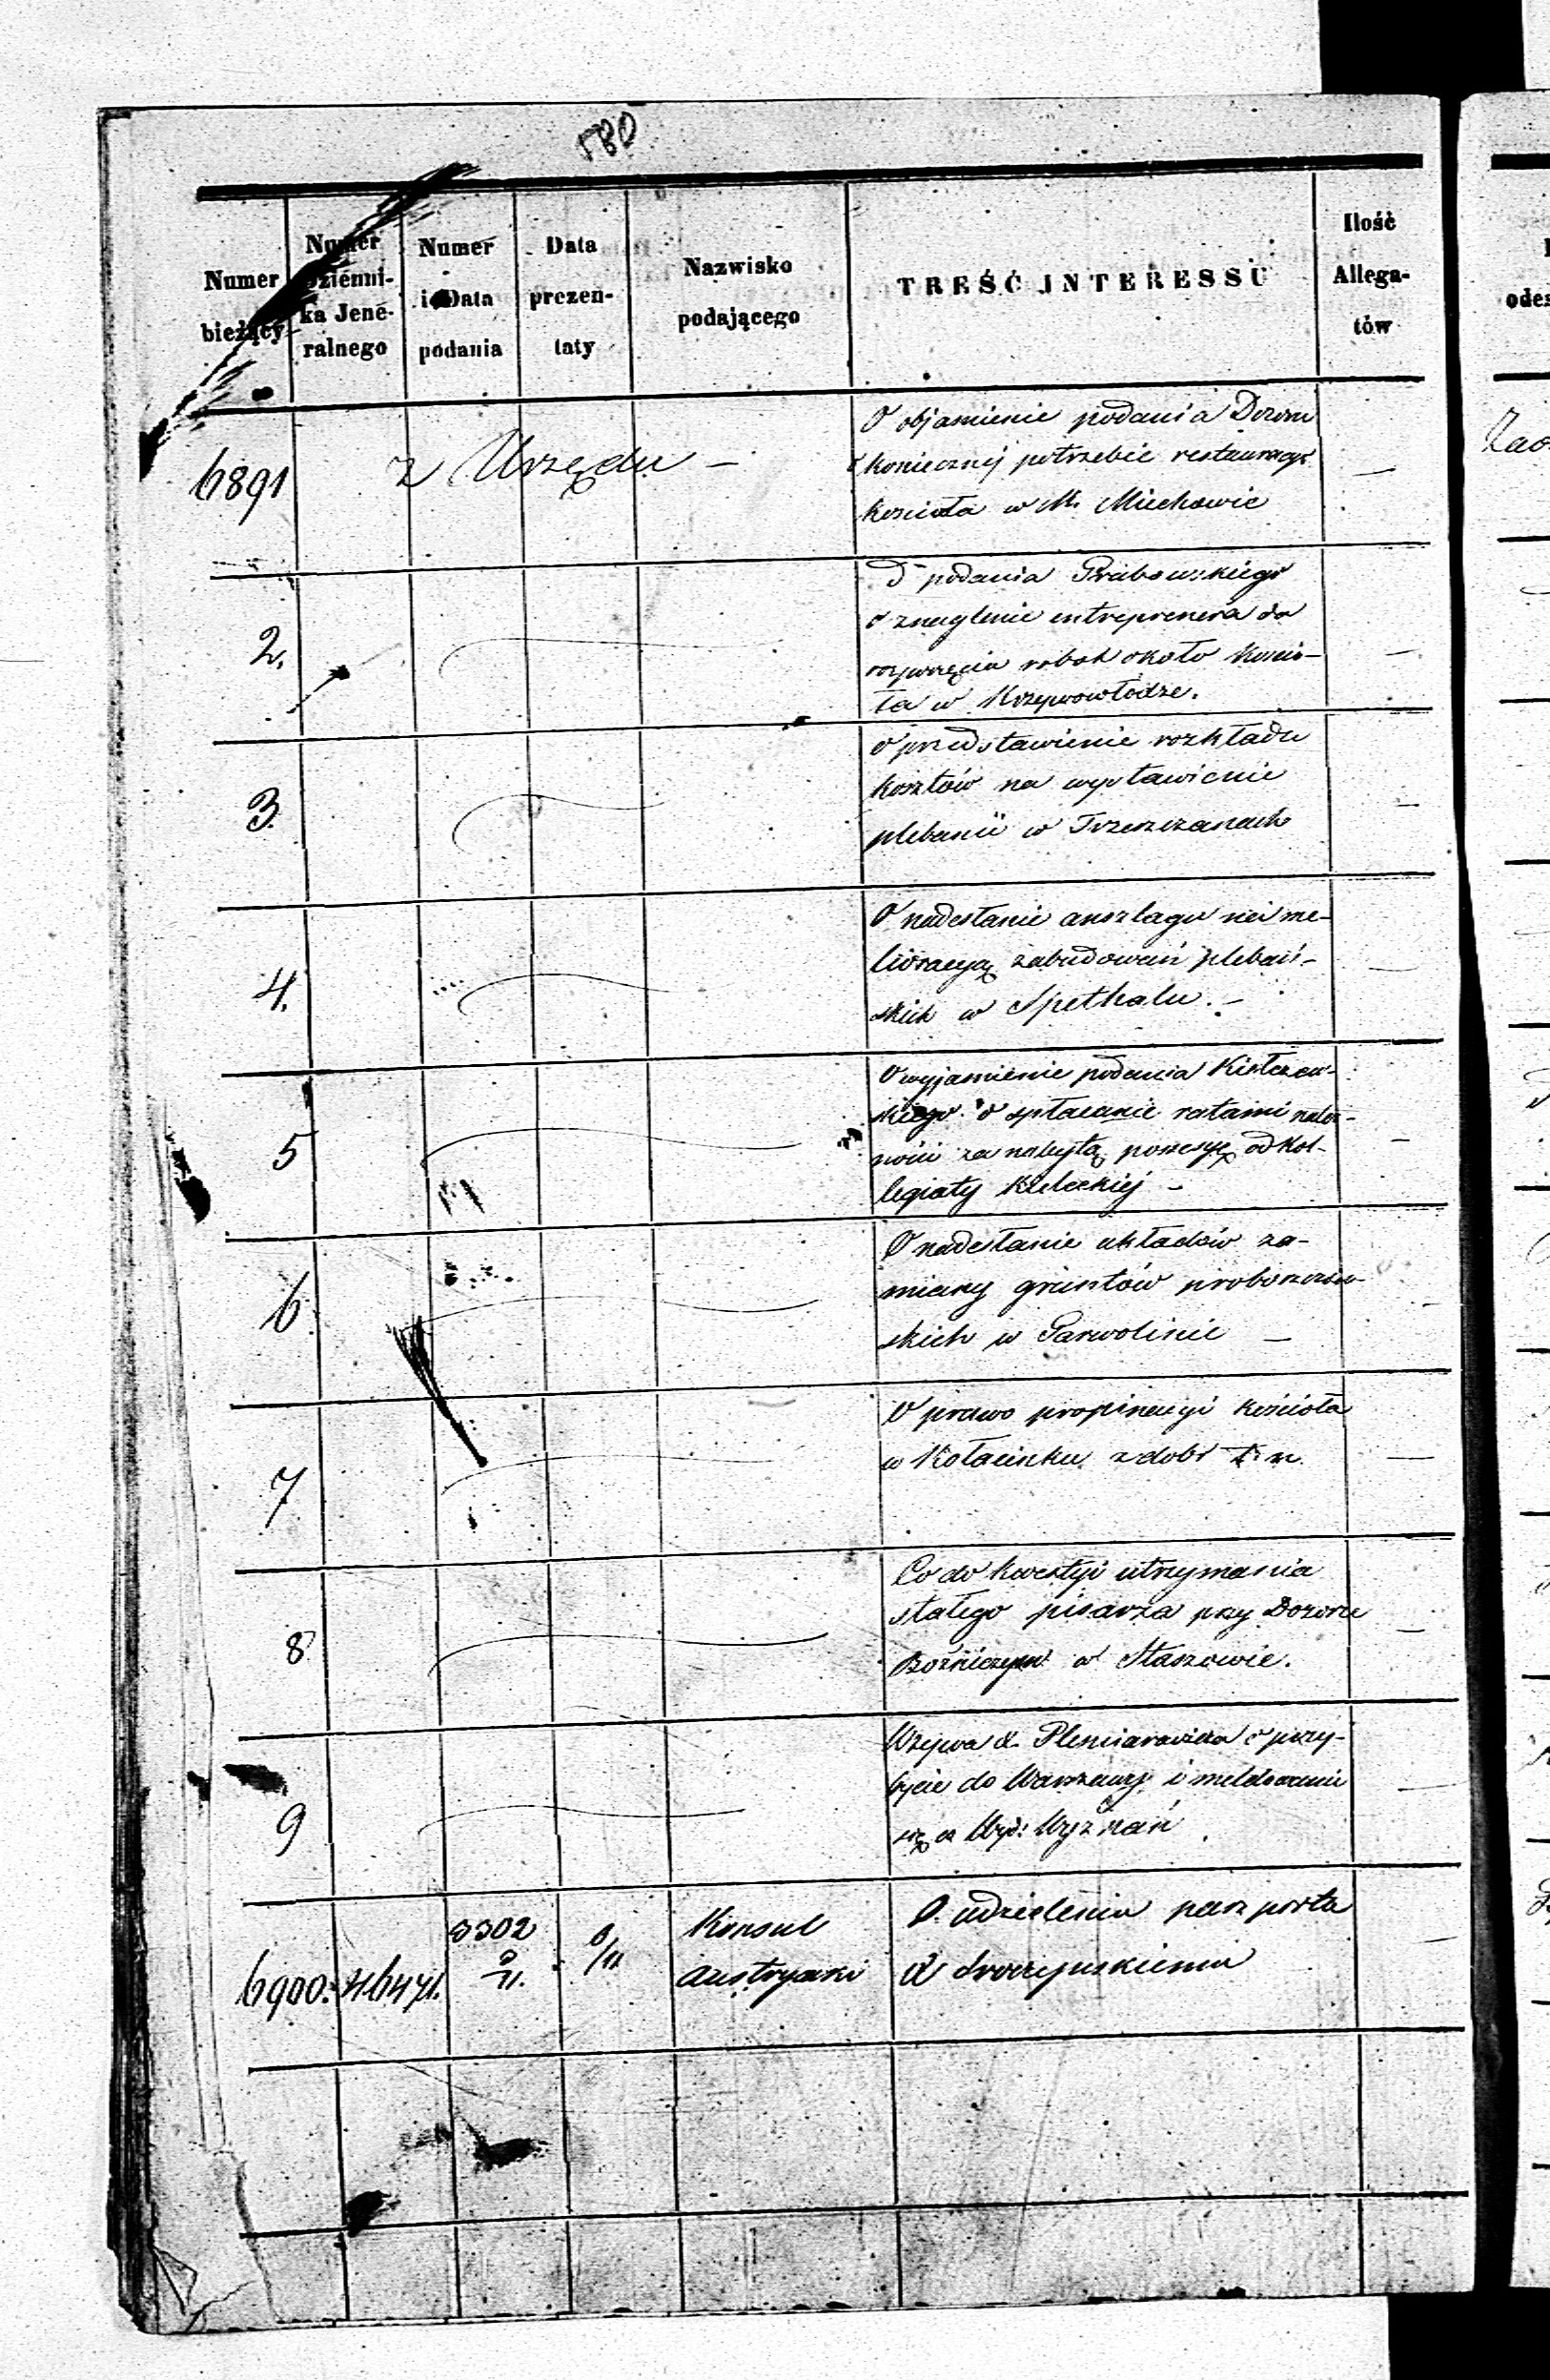 580
Numer bieżący
Numer Dzienni-ka Jene-ralnego
Numer i Data podania
Data prezen-taty
Nazwisko podającego
TREŚĆ INTERESSU
Ilość Allega-tów
6891
z Urzędu –
O objaśnienie podania Dozoru
o koniecznej potrzebie restauracyi
kościoła w M. Miechowie
2.
podania Grabowskiego
o znaglenie entreprenera do
rozpoczęcia robot około kościo-
ła w Krzepowłodze.
3.
O przedstawienie rozkładu
kosztów na wystawienie
plebanii w Trzeszczanach
4.
O nadesłanie anszlagu na me-
lioracyą zabudowań plebań-
skich w Spethalu. –
5
O wyjaśnienie podania
skiego o spłacanie ratami należ-
ności za nabytą possesyę od Kol-
legiaty Kieleckiéj –
6.
O nadesłanie układów za-
miany gruntów proboszczow-
skich w Garwolinie –
7
O prawo propinacyi kościoła
w Kołacinku z dobr t. n.
8.
Co do kwestyi utrzymania
stałego pisarza przy Dozorze
Bożniczym w Staszowie.
9
Wzywa X. o przy-
bycie do Warszawy i meldowanie
się w Wydz: Wyznań
6900.
3302
/11.
/11
Konsul
Austryacki
O udzielenie paszportu
X.
Zao
odes